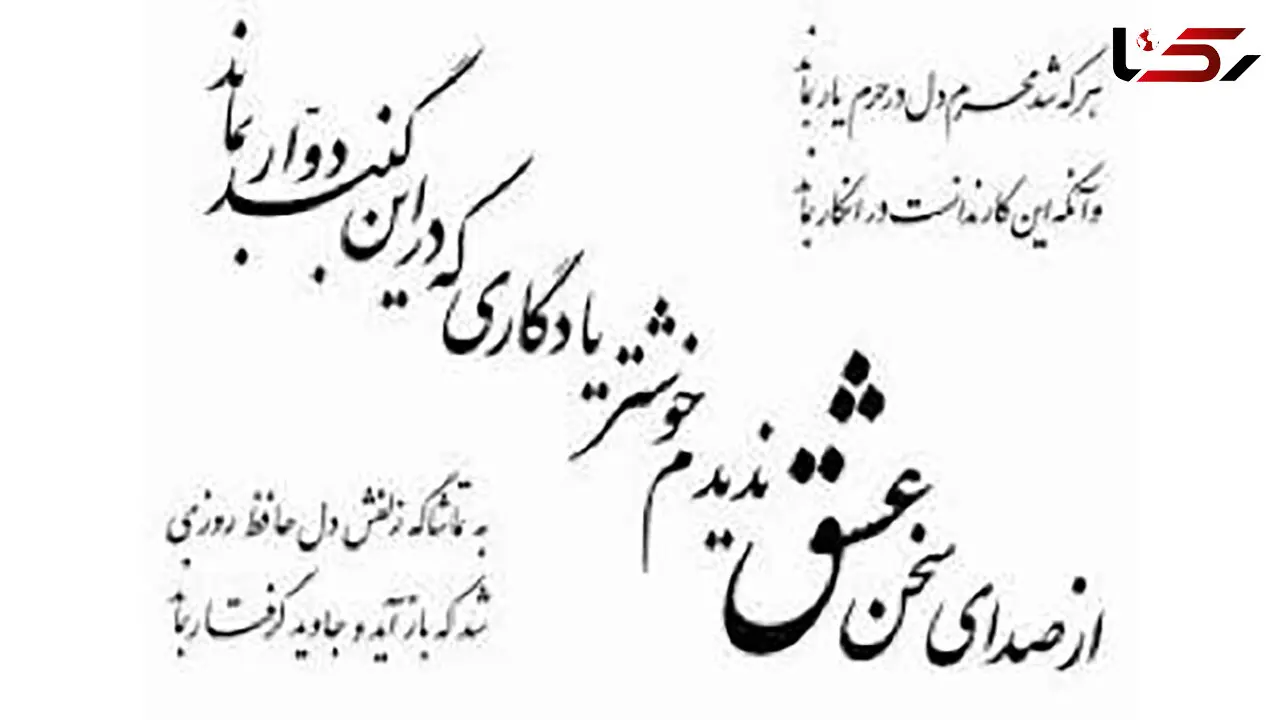 رکنا
هر که شد محرم دل در حرم یار بماند
وآنکه این کار ندانست در انکار بماند
از صدای سخن عشق ندیدم خوشتر
یادگاری که در این گنبد دوار بماند
به تماشاگه زلفش دل حافظ روزی
شد که باز آید و جاوید گرفتار بماند